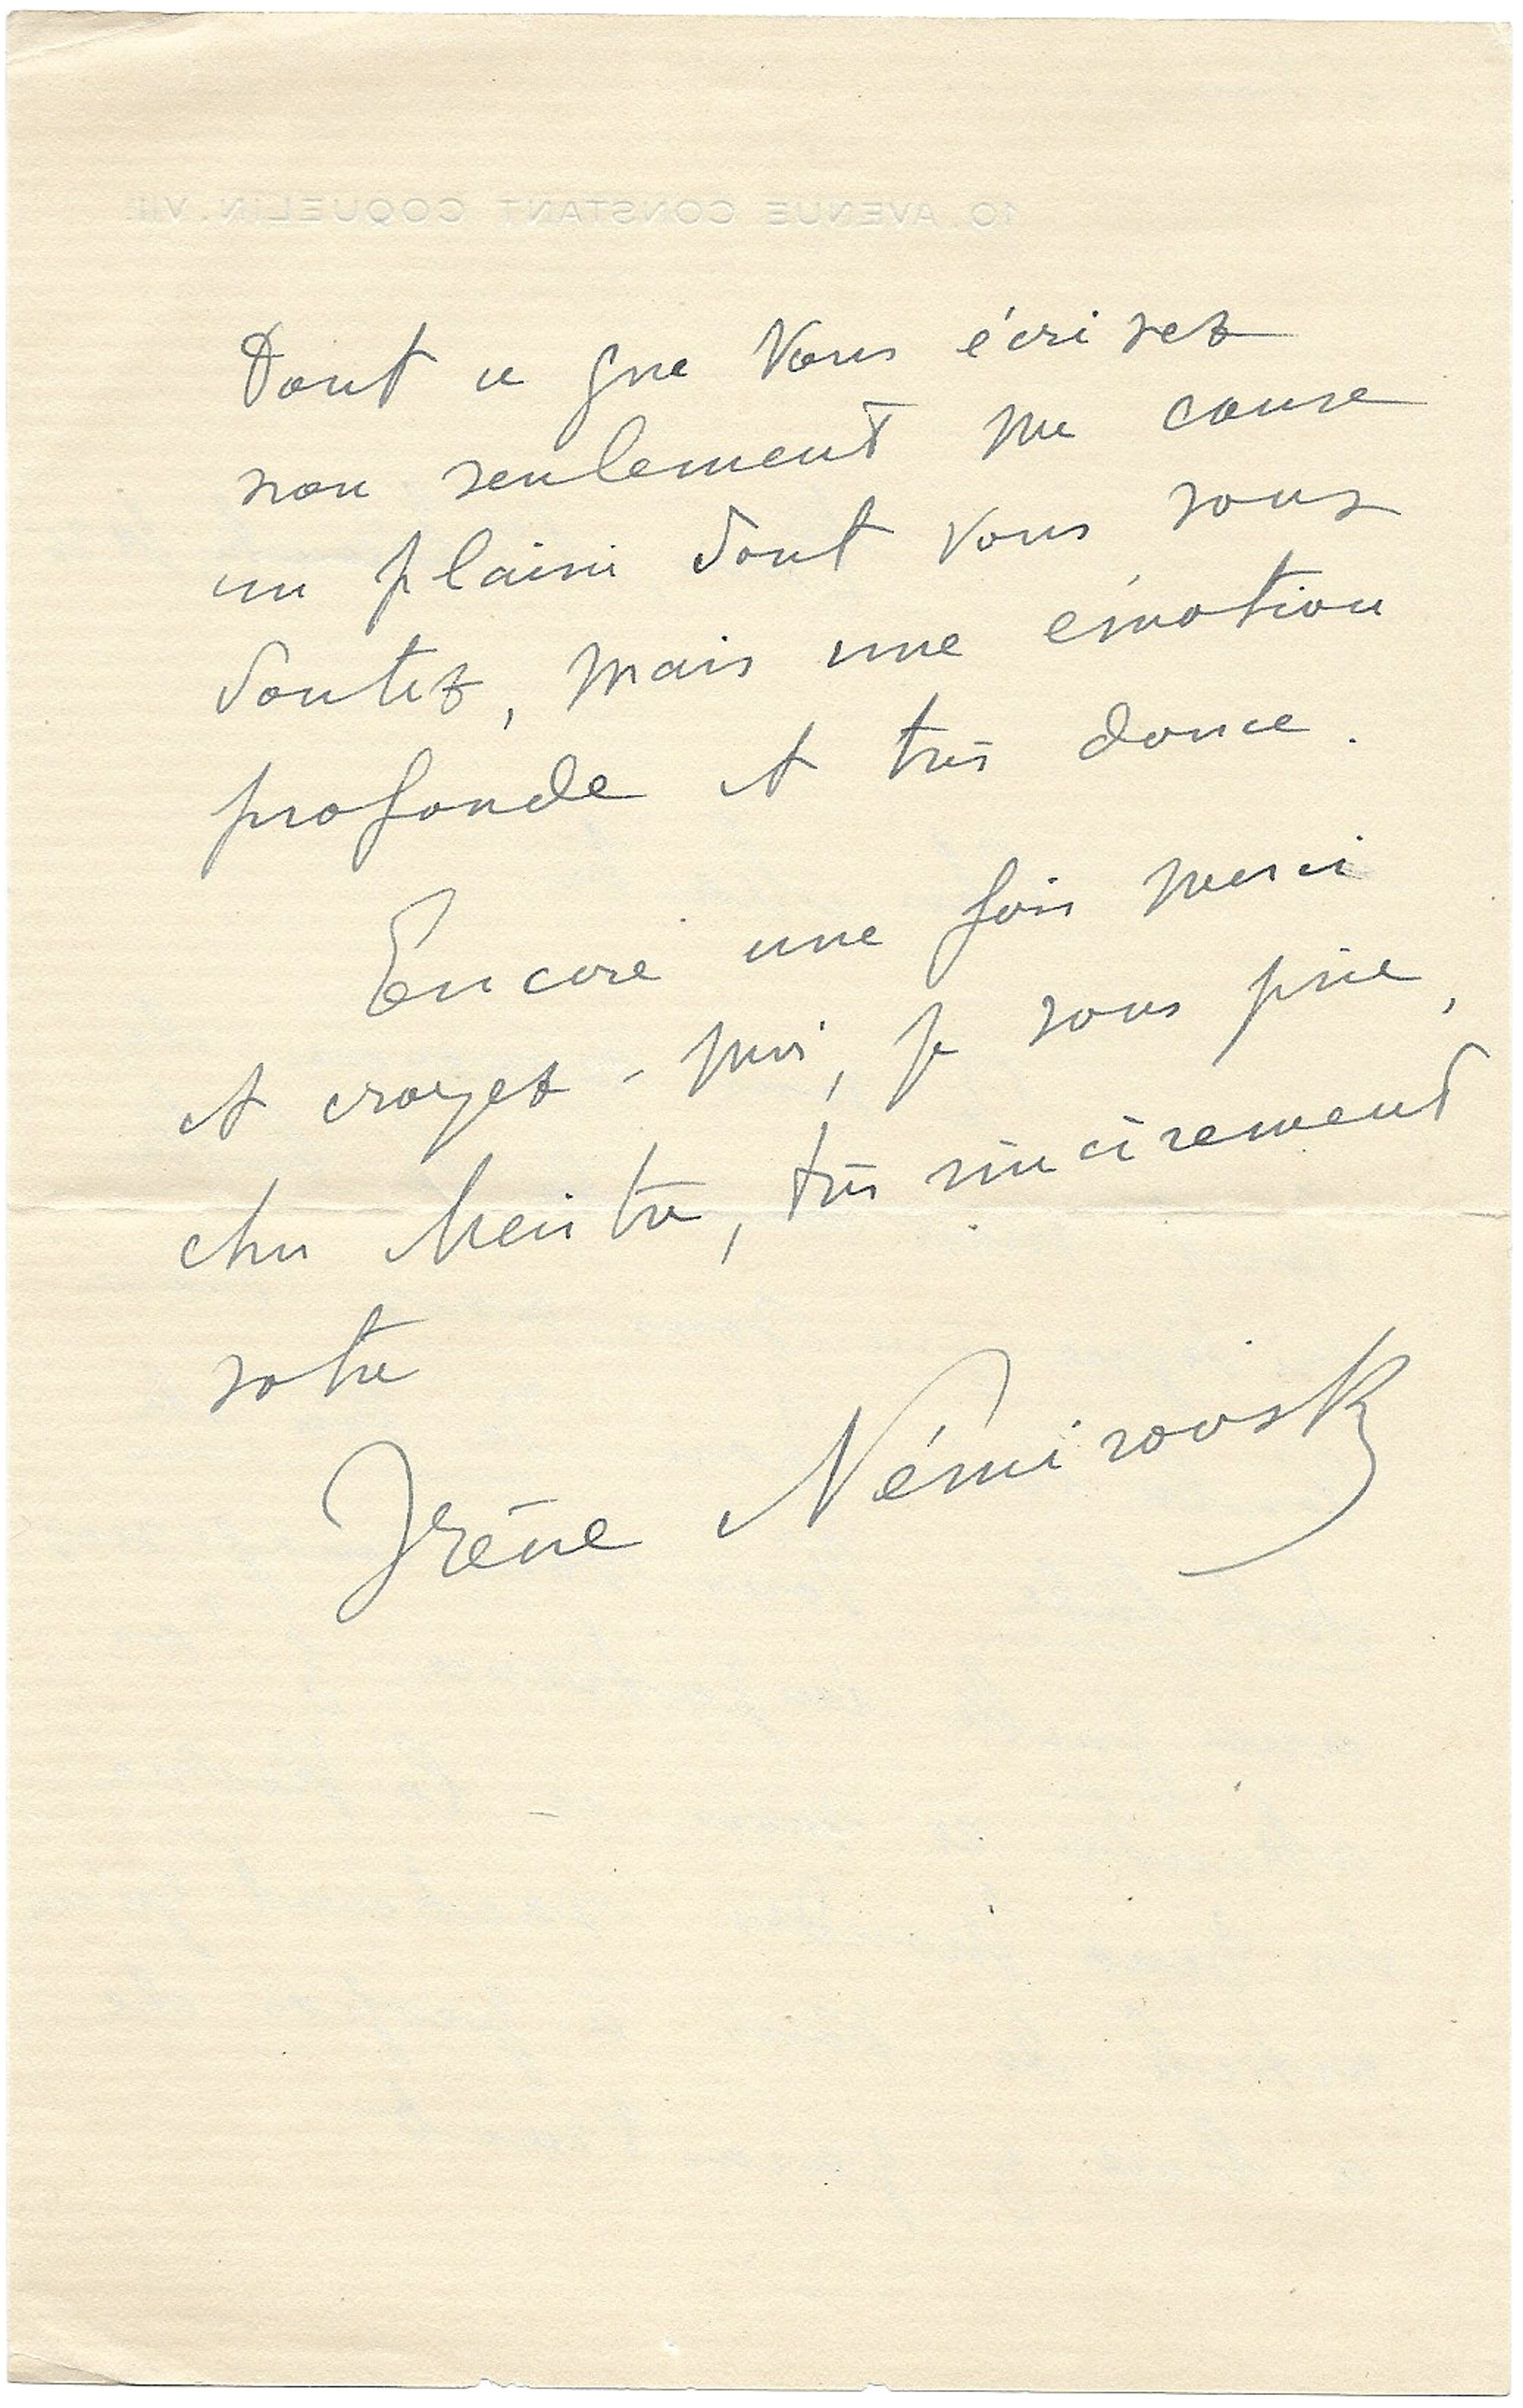 10. AVENUE CONSTANT COQUELIN. VIIᵉ
Tout ce que vous écrivez
non seulement me cause
un plaisir dont vous vous
doutez, mais une émotion
profonde et très douce.
Encore une fois merci
et croyez-moi, je vous prie,
cher Maître, très sincèrement
votre
Irène Némirovsky